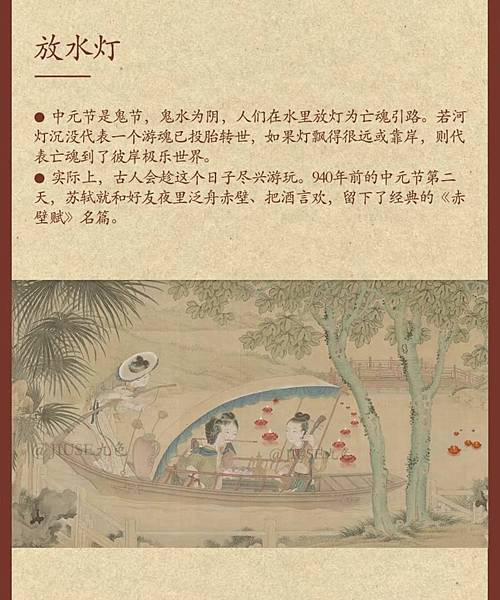 放水灯
● 中元节是鬼节，鬼水为阴，人们在水里放灯为亡魂引路。若河
灯沉没代表一个游魂已投胎转世，如果灯飘得很远或靠岸，则代
表亡魂到了彼岸极乐世界。
● 实际上，古人会趁这个日子尽兴游玩。940年前的中元节第二
天，苏轼就和好友夜里泛舟赤壁、把酒言欢，留下了经典的《赤
壁赋》名篇。
@JIUSE九色
@JIUSE九色